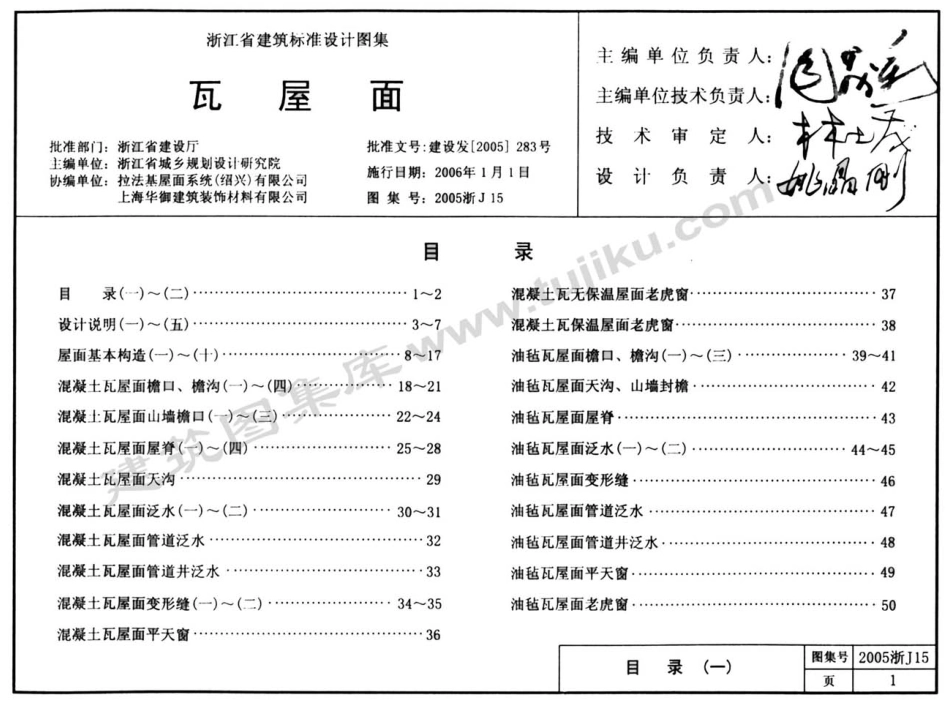 浙江省建筑标准设计图集
瓦 屋 面
批准部门：浙江省建设厅
主编单位：浙江省城乡规划设计研究院
协编单位：拉法基屋面系统(绍兴)有限公司
上海华御建筑装饰材料有限公司
批准文号：建设发[2005] 283号
施行日期：2006年 1 月 1 日
图 集 号：2005浙 J 15
主编单位负责人：
主编单位技术负责人：
技术审定人：
设计负责人：姚晶刚
目 录
目 录(一)～(二)……1～2
设计说明(一)～(五)……3～7
屋面基本构造(一)～(十)……8～17
混凝土瓦屋面檐口、檐沟(一)～(四)……18～21
混凝土瓦屋面山墙檐口(一)～(三)……22～24
混凝土瓦屋面屋脊(一)～(四)……25～28
混凝土瓦屋面天沟……29
混凝土瓦屋面泛水(一)～(二)……30～31
混凝土瓦屋面管道泛水……32
混凝土瓦屋面管道井泛水……33
混凝土瓦屋面变形缝(一)～(二)……34～35
混凝土瓦屋面平天窗……36
混凝土瓦无保温屋面老虎窗……37
混凝土瓦保温屋面老虎窗……38
油毡瓦屋面檐口、檐沟(一)～(三)……39～41
油毡瓦屋面天沟、山墙封檐……42
油毡瓦屋面屋脊……43
油毡瓦屋面泛水(一)～(二)……44～45
油毡瓦屋面变形缝……46
油毡瓦屋面管道泛水……47
油毡瓦屋面管道井泛水……48
油毡瓦屋面平天窗……49
油毡瓦屋面老虎窗……50
建筑图集库 www.tujiku.com
目 录 (一)
图集号 2005浙J15
页 1